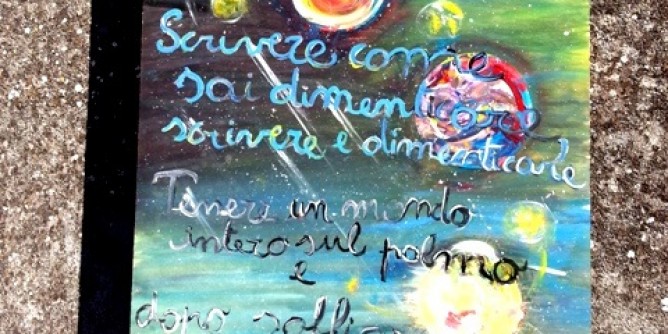 Scrivere come
sai dimenticare
scrivere e dimenticare
Tenere un mondo
intero sul palmo
e
dopo